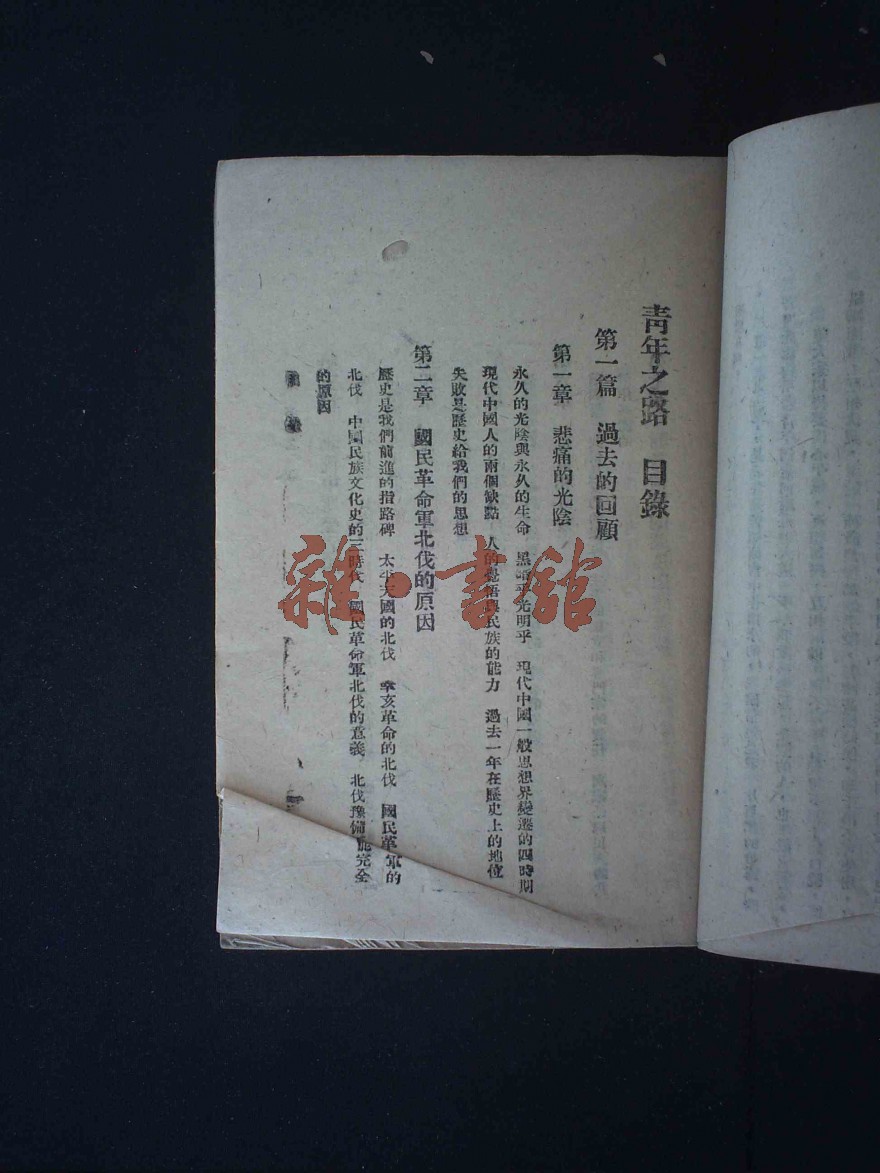 青年之路　目錄
第一篇　過去的回顧
第一章　悲痛的光陰
永久的光陰與永久的生命　黑暗乎光明乎　現代中國一般思想界變遷的四時期
現代中國人的兩個缺點　人的覺悟與民族的能力　過去一年在歷史上的地位
失敗是歷史給我們的思想
第二章　國民革命軍北伐的原因
歷史是我們前進的指路碑　太平天國的北伐　辛亥革命的北伐　國民革軍的
北伐　中國民族文化史的三時代　國民革命軍北伐的意義　北伐豫備能完全
的原因
雜·書館